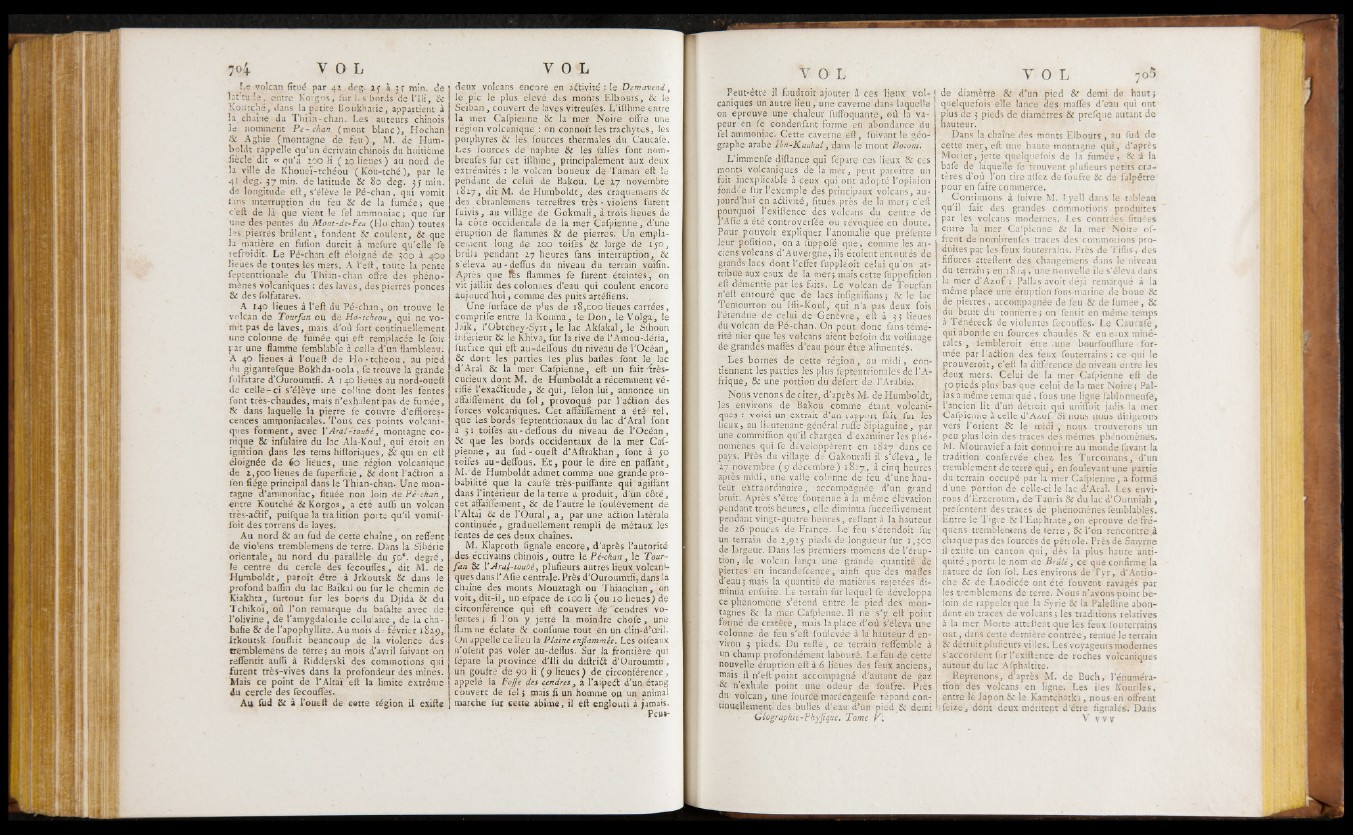 704 VOL VOL
Le volcan situé par 42 deg. 25 à 35 min. de
latitude, entre Korgos, sur les bords de l'Ili, &
Koutché, dans la petite Boukharie, appartient à
la chaîne du Thian-chan. Les auteurs chinois
le nomment Pe-chan (mont blanc), Hochan
& Aghie (montagne de feu), M. de Hum-
boldt rappelle qu'un écrivain chinois du huitième
siècle dit « qu'à 200 li (20 lieues) au nord de
la ville de Khoueï-tchéou (Kou-tché), par le
41 deg. 37 min. de latitude & 80 deg. 35 min.
de longitude est, s'élève le Pé-chan, qui vomit
sans interruption du feu & de la fumée; que
c'est de là que vient le sel ammoniac; que sur
une des pentes du Mont-de-Feu (Ho chan) toutes
les pierres brûlent, fondent & coulent, & que
la matière en fusion durcit à mesure qu'elle se
refroidit. Le Pé-chan est éloigné de 300 à 400
lieues de toutes les mers. A l'est, toute la pente
septentrionale du Thian-chan offre des phéno-
mènes volcaniques : des laves, des pierres ponces
& des solfatares.
A 140 lieues à l'est du Pé-chan, on trouve le
volcan de Tourfan ou de Ho-tcheou, qui ne vo-
mit pas de laves, mais d'où sort continuellement
une colonne de fumée qui est remplacée le soir
par une flamme semblable à celle d'un flambeau.
A 40 lieues à l'ouest de Ho-tcheou, au pied
du gigantesque Bokhda-oola, se trouve la grande
solfatare d'Ouroumtsi. A 140 lieues au nord-ouest
de celle-ci s'élève une colline dont les fentes
sont très-chaudes, mais n'exhalent pas de fumée,
& dans laquelle la pierre se couvre d'efflores-
cences ammoniacales. Tous ces points volcani-
ques forment, avec l'Aral-toubé, montagne co-
nique & insulaire du lac Ala-Koul, qui étoit en
ignition dans les tems historiques, & qui en est
éloignée de 60 lieues, une région volcanique
de 2,500 lieues de superficie, & dont l'action a
son siége principal dans le Thian-chan. Une mon-
tagne d'ammoniac, située non loin de Pé-chan,
entre Koutché & Korgos, a été aussi un volcan
très-actif, puisque la tradition porte qu'il vomis-
soit des torrens de laves.
Au nord & au sud de cette chaîne, on ressent
de violens tremblemens de terre. Dans la Sibérie
orientale, au nord du parallèle du 50e. degré,
le centre du cercle des secousses, dit M. de
Humboldt, paroît être à Irkoutsk & dans le
profond bassin du lac Baïkal ou sur le chemin de
Kiakhta, surtout sur les bords du Djida & du
Tchikoï, où l'on remarque du basalte avec de
l'olivine, de l'amygdaloïde cellulaire, de la cha-
basie & de l'apophyllite. Au mois de février 1829,
Irkoutsk souffrit beaucoup de la violence des
tremblemens de terre; au mois d'avril suivant on
ressentit aussi à Ridderski des commotions qui
furent très-vives dans la profondeur des mines.
Mais ce point de l'Altaï est la limite extrême
du cercle des secousses.
Au sud & à l'ouest de cette région il existe
deux volcans encore en activité : le Demavend,
le pic le plus élevé des monts Elbours, & le
Seïban, couvert de laves vitreuses. L'isthme entre
la mer Caspienne & la mer Noire offre une
région volcanique : on connoît les trachytes, les
porphyres & les sources thermales du Caucase.
Les sources de naphte & les salses sont nom-
breuses sur cet isthme, principalement aux deux
extrémités : le volcan boueux de Taman est le
pendant de celui de Bakou. Le 27 novembre
1827, dit M. de Humboldt, des craquemens &
des ébranlemens terrestres très-violens furent
suivis, au village de Gokmali, à trois lieues de
la côte occidentale de la mer Caspienne, d'une
éruption de flammes & de pierres. Un empla-
cement long de 200 toises & large de 150,
brûla pendant 27 heures sans interruption, &
s'éleva au-dessus du niveau du terrain voisin.
Après que les flammes se furent éteintes, on
vit jaillir des colonnes d'eau qui coulent encore
aujourd'hui, comme des puits artésiens.
Une surface de plus de 18,000 lieues carrées,
comprise entre la Kouma, le Don, le Volga, le
Jaïk, l'Obtchey-Syrt, le lac Aksakal, le Sihoun
inférieur & le Khiva, sur la rive de l'Amou-déria,
surface qui est au-dessous du niveau de l'Océan,
& dont les parties les plus basses sont le lac
d'Aral & la mer Caspienne, est un fait très-
curieux dont M. de Humboldt a récemment vé-
rifié l'exactitude, & qui, selon lui, annonce un
affaissement du sol, provoqué par l'action des
forces volcaniques. Cet affaissement a été tel,
que les bords septentrionaux du lac d'Aral sont
à 31 toises au-dessous du niveau de l'Océan,
& que les bords occidentaux de la mer Cas-
pienne, au sud-ouest d'Astrakhan, sont à 50
toises au-dessous. Et, pour le dire en passant,
M. de Humboldt admet comme une grande pro-
babilité que la cause très-puissante qui agissant
dans l'intérieur de la terre a produit, d'un côté,
cet affaissement, & de l'autre le soulèvement de
l'Altaï & de l'Oural, a, par une action latérale
continuée, graduellement rempli de métaux les
fentes de ces deux chaînes.
M. Klaproth signale encore, d'après l'autorité
des écrivains chinois, outre le Pé-chan, le Tour-
fan & l'Aral-toubé, plusieurs autres lieux volcani-
ques dans l'Asie centrale. Près d'Ouroumtsi, dans la
chaîne des monts Mouztagh ou Thianchan, on
voit, dit-il, un espace de 100 li (ou 10 lieues) de
circonférence qui est couvert de cendres vo-
lantes; si l'on y jette la moindre chose, une
flamme éclate & consume tout en un clin-d'œil.
On appelle ce lieu la Plaine enflammée. Les oiseaux
n'osent pas voler au-dessus. Sur la frontière qui
sépare la province d'Ili du district d'Ouroumtsi,
un gouffre de 90 li (9 lieues) de circonférence,
appelé la Fosse des cendres, a l'aspect d'un étang
couvert de sel; mais si un homme ou un animal
marche sur cette abîme, il est englouti à jamais.
Peut-
VOL VOL 705
Peut-être il faudroit ajouter à ces lieux vol-
caniques un autre lieu, une caverne dans laquelle
on éprouve une chaleur suffoquante, où la va-
peur en se condensant forme en abondance du
sel ammoniac. Cette caverne est, suivant le géo-
graphe arabe Ibn-Kauhal, dans le mont Botom.
L'immense distance qui sépare ces lieux & ces
monts volcaniques de la mer, peut paroître un
fait inexplicable à ceux qui ont adopté l'opinion
fondée sur l'exemple des principaux volcans, au-
jourd'hui en activité, situés près de la mer; c'est
pourquoi l'existence des volcans du centre de
l'Asie a été controversée ou révoquée en doute.
Pour pouvoir expliquer l'anomalie que présente
leur position, on a supposé que, comme les an-
ciens volcans d'Auvergne, ils étoient entourés de
grands lacs dont l'effet suppléoit celui qu'on at-
tribue aux eaux de la mer; mais cette supposition
est démentie par les faits. Le volcan de Tourfan
n'est entouré que de lacs insignifians; & le lac
Temourtou ou Issi-Koul, qui n'a pas deux fois
l'étendue de celui de Genève, est à 33 lieues
du volcan de Pé-chan. On peut donc sans témé-
rité nier que les volcans aient besoin du voisinage
de grandes masses d'eau pour être alimentés.
Les bornes de cette région, au midi, con-
tiennent les parties les plus septentrionales de l'A-
frique, & une portion du désert de l'Arabie.
Nous venons de citer, d'après M. de Humboldt,
les environs de Bakou comme étant volcani-
ques : voici un extrait d'un rapport fait sur les
lieux, au lieutenant-général russe Sipiaguine, par
une commission qu'il chargea d'examiner les phé-
nomènes qui se développèrent en 1827 dans ce
pays. Près du village de Gakomali il s'éleva, le
27 novembre (9 décembre) 1827, à cinq heures
après midi, une vaste colonne de feu d'une hau-
teur extraordinaire, accompagnée d'un grand
bruit. Après s'être soutenue à la même élévation
pendant trois heures, elle diminua successivement
pendant vingt-quatre heures, restant à la hauteur
de 26 pouces de France. Le feu s'étendoit sur
un terrain de 2,925 pieds de longueur sur 1,300
de largeur. Dans les premiers momens de l'érup-
tion, le volcan lança une grande quantité de
pierres en incandescence, ainsi que des masses
d'eau; mais la quantité de matières rejetées di-
minua ensuite. Le terrain sur lequel se développa
ce phénomène s'étend entre le pied des mon-
tagnes & la mer Caspienne. Il ne s'y est point
formé de cratère, mais la place d'où s'éleva une
colonne de feu s'est soulevée à la hauteur d'en-
viron 3 pieds. Du reste, ce terrain ressemble à
un champ profondément labouré. Le feu de cette
nouvelle éruption est à 6 lieues des feux anciens,
mais il n'est point accompagné d'autant de gaz
& n'exhale point une odeur de soufre. Près
du volcan, une source marécageuse répand con-
tinuellement des bulles d'eau d'un pied & demi
Géographie-Physique. Tome V.
de diamètre & d'un pied & demi de haut;
quelquefois elle lance des masses d'eau qui ont
plus de 3 pieds de diamètres & presque autant de
hauteur.
Dans la chaîne des monts Elbours, au sud de
cette mer, est une haute montagne qui, d'après
Morier, jette quelquefois de la fumée, & à la
base de laquelle se trouvent plusieurs petits cra-
tères d'où l'on tire assez de soufre & de salpêtre
pour en faire commerce.
Continuons à suivre M. Lyell dans le tableau
qu'il fait des grandes commotions produites
par les volcans modernes. Les contrées situées
entre la mer Caspienne & la mer Noire of-
frent de nombreuses traces des commotions pro-
duites par les feux souterrains. Près de Tiflis, des
fissures attestent des changemens dans le niveau
du terrain; en 1814, une nouvelle île s'éleva dans
la mer d'Azof : Pallas avoit déjà remarqué à la
même place une éruption sous-marine de boue &
de pierres, accompagnée de feu & de fumée, &
du bruit du tonnerre; on sentit en même temps
à Ténéreck de violentes secousses. Le Caucase,
qui abonde en sources chaudes & en eaux miné-
rales, sembleroit être une boursoufflure for-
mée par l'action des feux souterrains : ce qui le
prouveroit, c'est la différence de niveau entre les
deux mers. Celui de la mer Caspienne est de
50 pieds plus bas que celui de la mer Noire; Pal-
las a même remarqué, sous une ligne sablonneuse,
l'ancien lit d'un détroit qui unissoit jadis la mer
Caspienne à celle d'Azof. Si nous nous dirigeons
vers l'orient & le midi, nous trouverons un
peu plus loin des traces des mêmes phénomènes.
M. Mouravief a fait connoître au monde savant la
tradition conservée chez les Turcomans, d'un
tremblement de terre qui, en soulevant une partie
du terrain occupé par la mer Caspienne, a formé
d'une portion de celle-ci le lac d'Aral. Les envi-
rons d'Erzeroum, de Tauris & du lac d'Ourmiah,
présentent des traces de phénomènes semblables.
Entre le Tigre & l'Euphrate, on éprouve de fré-
quens tremblemens de terre, & l'on rencontre à
chaque pas des sources de pétrole. Près de Smyrne
il existe un canton qui, dès la plus haute anti-
quité, porta le nom de Brûlé, ce que confirme la
nature de son sol. Les environs de Tyr, d'Antio-
che & de Laodicée ont été souvent ravagés par
les tremblemens de terre. Nous n'avons point be-
soin de rappeler que la Syrie & la Palestine abon-
dent en traces de volcans : les traditions relatives
à la mer Morte attestent que les feux souterrains
ont, dans cette dernière contrée, remué le terrain
& détruit plusieurs villes. Les voyageurs modernes
s'accordent sur l'existence de roches volcaniques
autour du lac Asphaltite.
Reprenons, d'après M. de Buch, l'énuméra-
tion des volcans en ligne. Les îles Kouriles,
entre le Japon & le Kamtchatka, nous en offrent
seize, dont deux méritent d'être signalés. Dans
V v v v